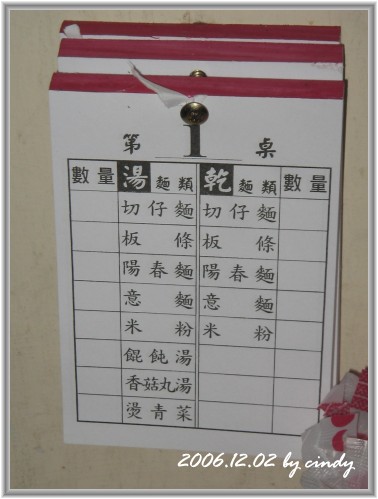 第 1 桌
數量 湯麵類 乾麵類 數量
切仔麵 切仔麵
板條 板條
陽春麵 陽春麵
意麵 意麵
米粉 米粉
餛飩湯
香菇丸湯
燙青菜
2006.12.02 by.cindy